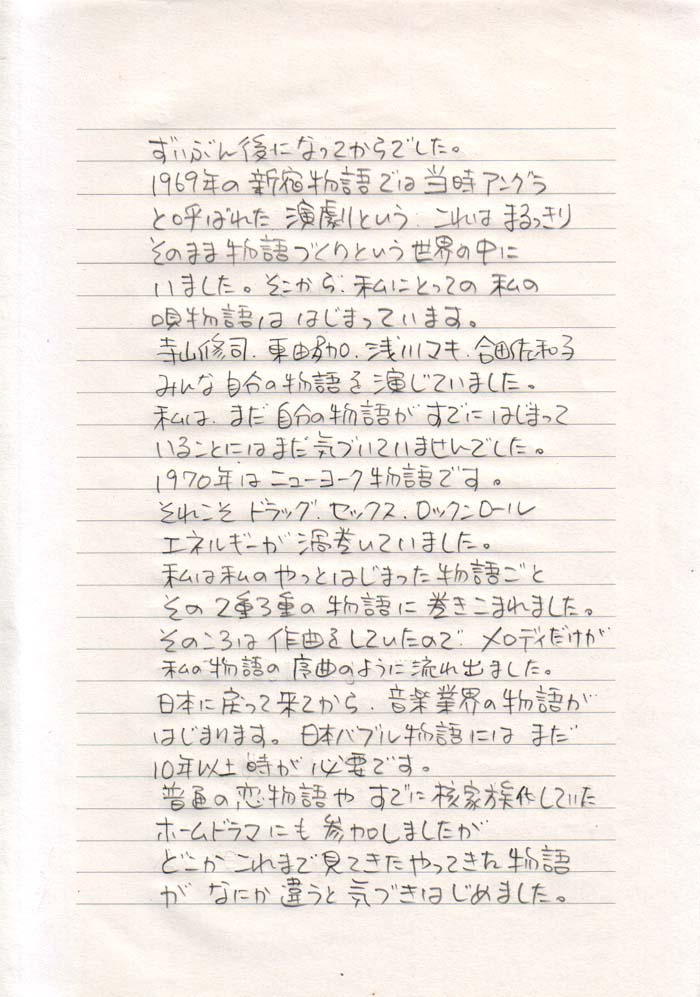 ずいぶん後になってからでした。
1969年の新宿物語では当時アングラ
と呼ばれた演劇という、これはまるっきり
そのまま物語づくりという世界の中に
いました。そこから、私にとっての私の
唄物語ははじまっています。
寺山修司、東由多加、浅川マキ、合田佐和子
みんな自分の物語を演じていました。
私は、まだ自分の物語がすでにはじまって
いることにはまだ気づいていませんでした。
1970年はニューヨーク物語です。
それこそドラッグ、セックス、ロックンロール
エネルギーが渦巻いていました。
私は私のやっとはじまった物語ごと
その2重3重の物語に巻きこまれました。
そのころは作曲をしていたので、メロディだけが
私の物語の序曲のように流れ出ました。
日本に戻って来てから、音楽業界の物語が
はじまります。日本バブル物語にはまだ
10年以上時が必要です。
普通の恋物語やすでに核家族化していた
ホームドラマにも参加しましたが
どこかこれまで見てきたやってきた物語
がなにか違うと気づきはじめました。